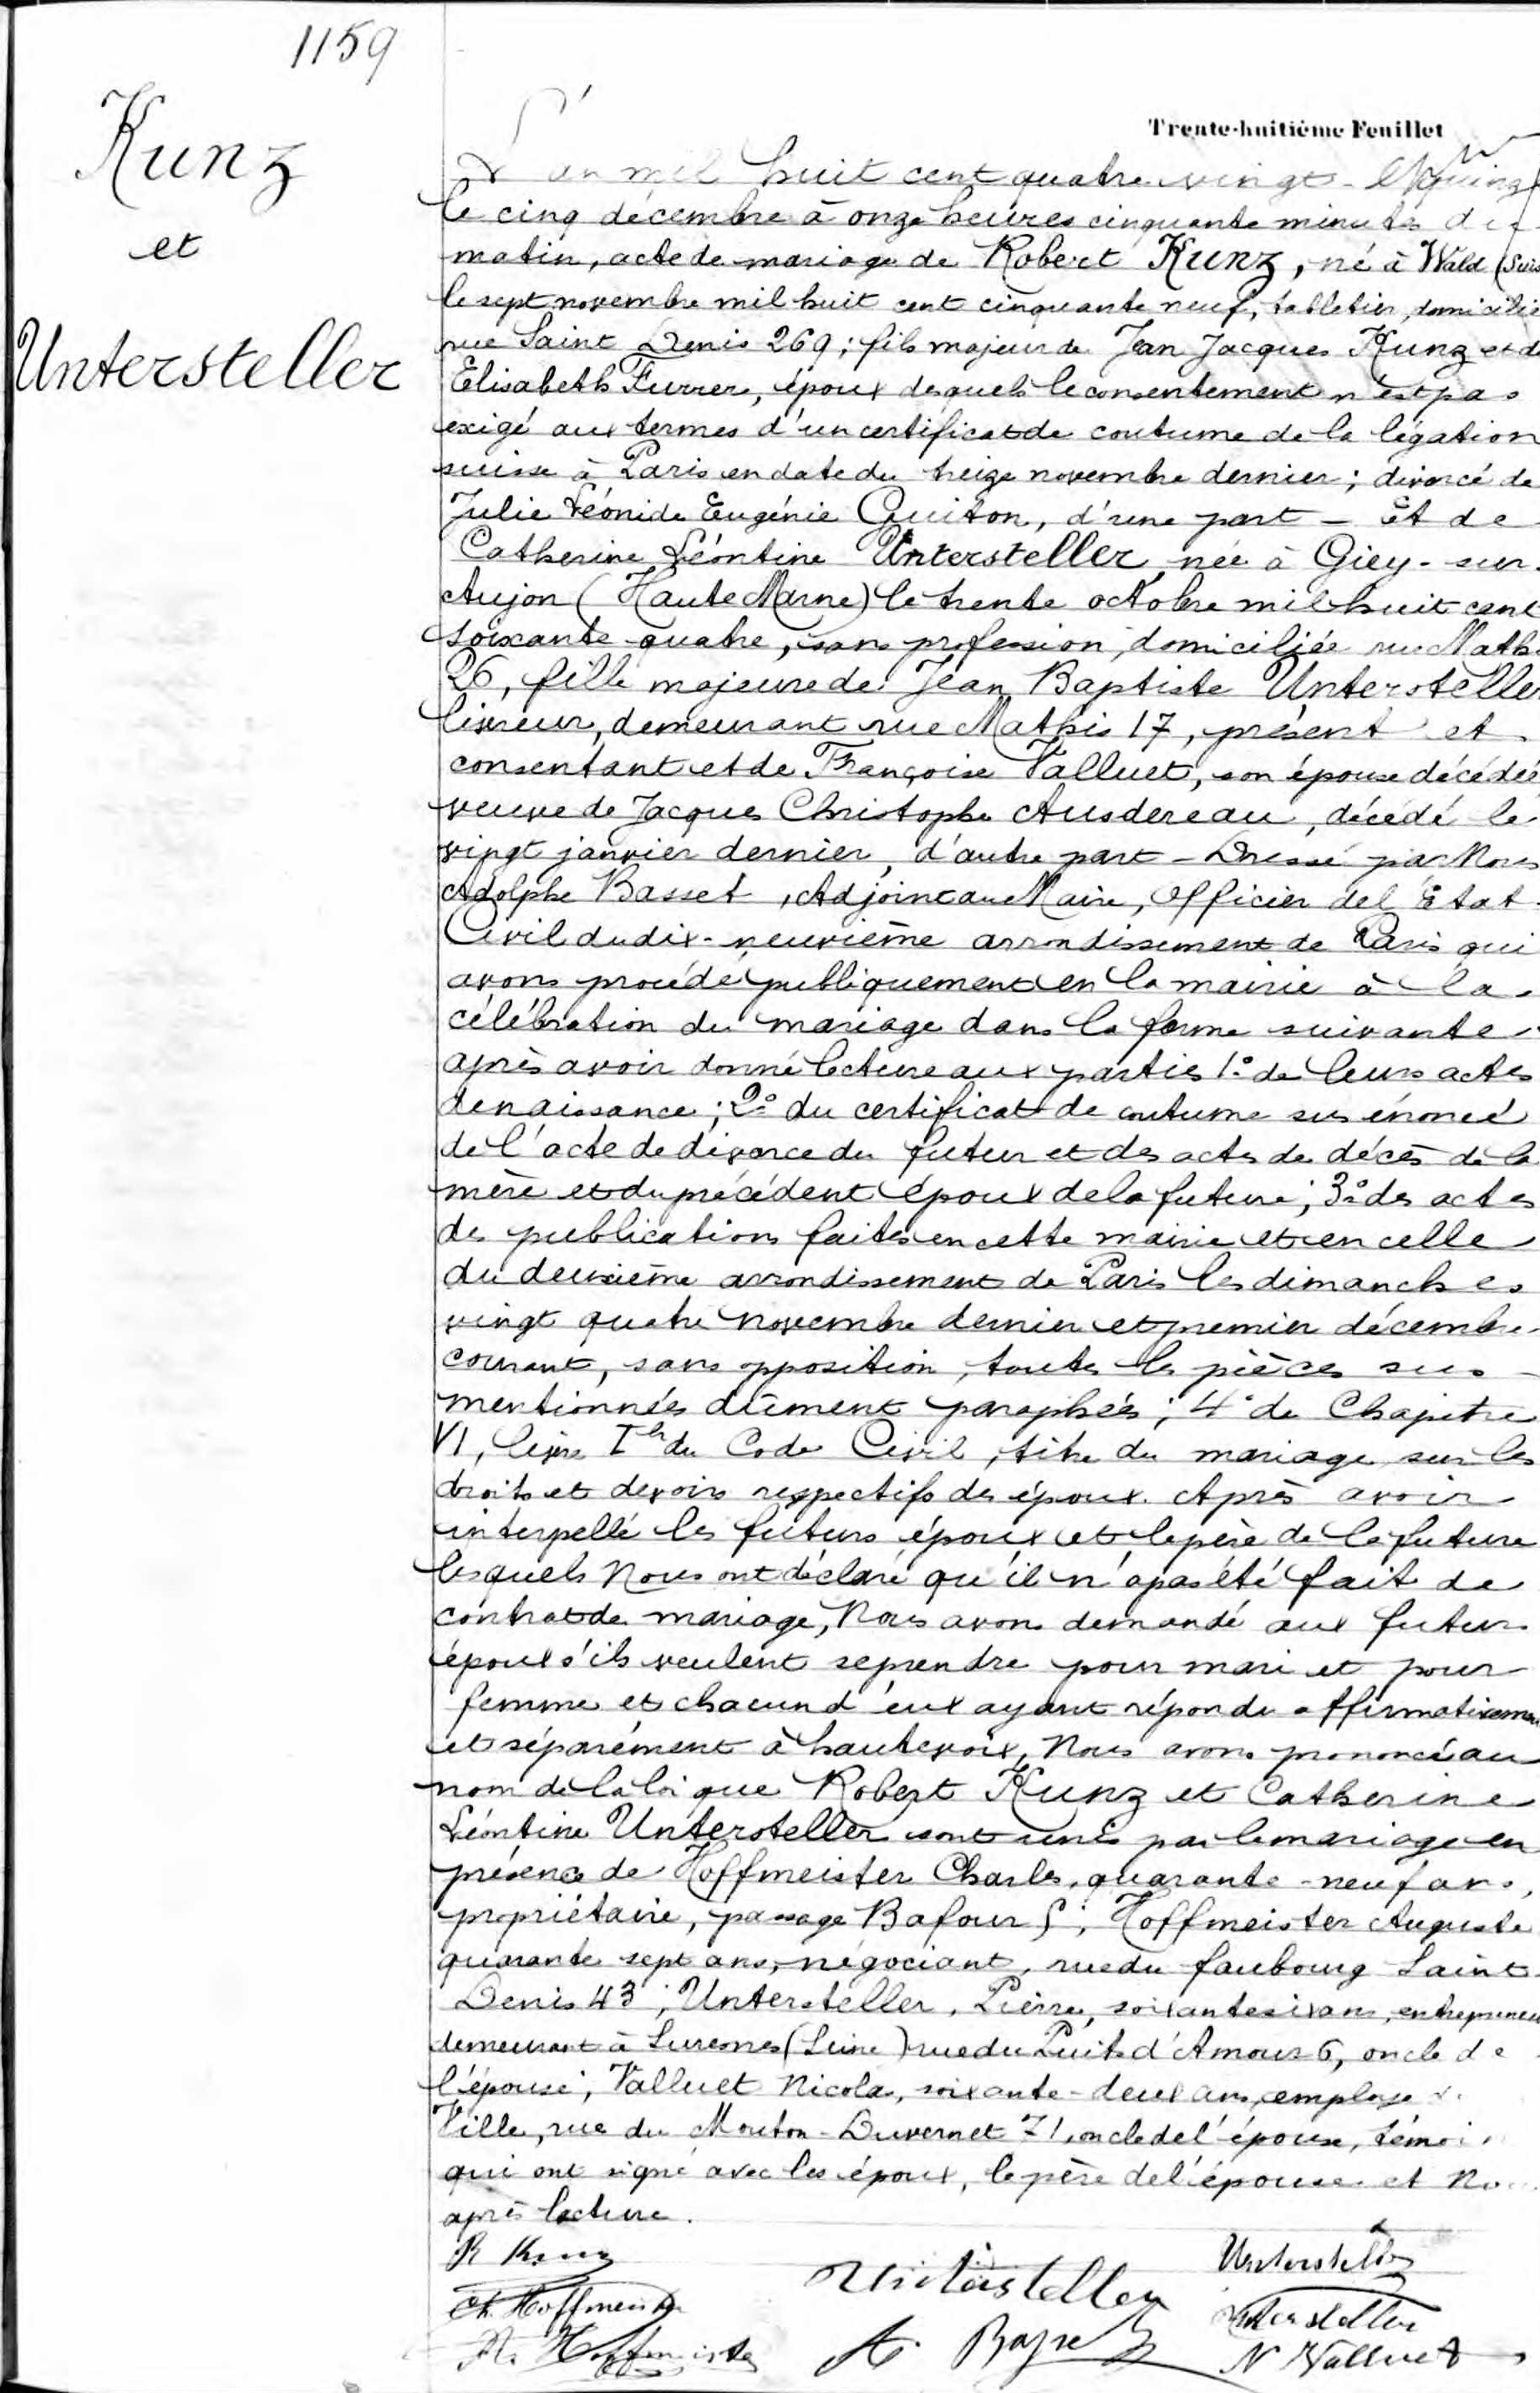 1159
Kunz
et
Untersteller
Trente-huitième Feuillet
L'an mil huit cent quatre vingt-
le cinq décembre à onze heures cinquante minutes du
matin, acte de mariage de Robert Kunz, né à Wald (Suis
le sept novembre mil huit cent cinquante neuf, tabletier, domicilié
rue Saint Denis 269; fils majeur de Jean Jacques Kunz et de
Elisabeth Furrer, époux desquels le consentement n'est pas
exigé aux termes d'un certificat de coutume de la légation
suisse à Paris en date du treize novembre dernier; divorcé de
Julie Léonide Eugénie Guiton, d'une part - Et de
Catherine Léontine Untersteller, née à Giey-sur-
Aujon (Haute Marne) le trente octobre mil huit cent
soixante-quatre, sans profession, domiciliée rue Mathi
26, fille majeure de Jean Baptiste Untersteller
livreur, demeurant rue Mathis 17, présent et
consentant et de Françoise Valluet, son épouse décédée
veuve de Jacques Christophe Ausdereau, décédé le
vingt janvier dernier, d'autre part - Dressé par Nous
Adolphe Basset, Adjoint au Maire, Officier de l'Etat-
Civil du dix-neuvième arrondissement de Paris qui
avons procédé publiquement en la mairie à la
célébration du mariage dans la forme suivante
après avoir donné lecture aux parties 1° de leurs actes
de naissance; 2° du certificat de coutume sus énoncé
de l'acte de divorce du futur et des actes de décès de la
mère et du précédent époux de la future; 3° des actes
de publications faites en cette mairie et en celle
du deuxième arrondissement de Paris les dimanches
vingt quatre novembre dernier et premier décembre
courant, sans opposition, toutes les pièces sus-
mentionnées dûment paraphées; 4° du Chapitre
VI, livre Ier du Code Civil, titre du mariage, sur les
droits et devoirs respectifs des époux. Après avoir
interpellé les futurs époux et le père de la future
lesquels Nous ont déclaré qu'il n'a pas été fait de
contrat de mariage, Nous avons demandé aux futurs
époux s'ils veulent se prendre pour mari et pour
femme et chacun d'eux ayant répondu affirmativemen
et séparément à haute voix, Nous avons prononcé au
nom de la loi que Robert Kunz et Catherine
Léontine Untersteller sont unis par le mariage en
présence de Hoffmeister Charles, quarante-neuf ans,
propriétaire, passage Bafour 5; Hoffmeister Auguste
quarante sept ans, négociant, rue du faubourg Saint
Denis 43; Untersteller, Pierre, soixante six ans, entrepreneu
demeurant à Suresnes (Seine) rue du Puits d'Amour 6, oncle de
l'épouse; Valluet Nicolas, soixante-deux ans, employé
Ville, rue du Mouton-Duvernet 71, oncle de l'épouse, témoi
qui ont signé avec les époux, le père de l'épouse et No
après lecture.
R Kunz
Untersteller
Untersteller
Ch. Hoffmeister
Untersteller
A. Hoffmeister
A. Basset
N Valluet